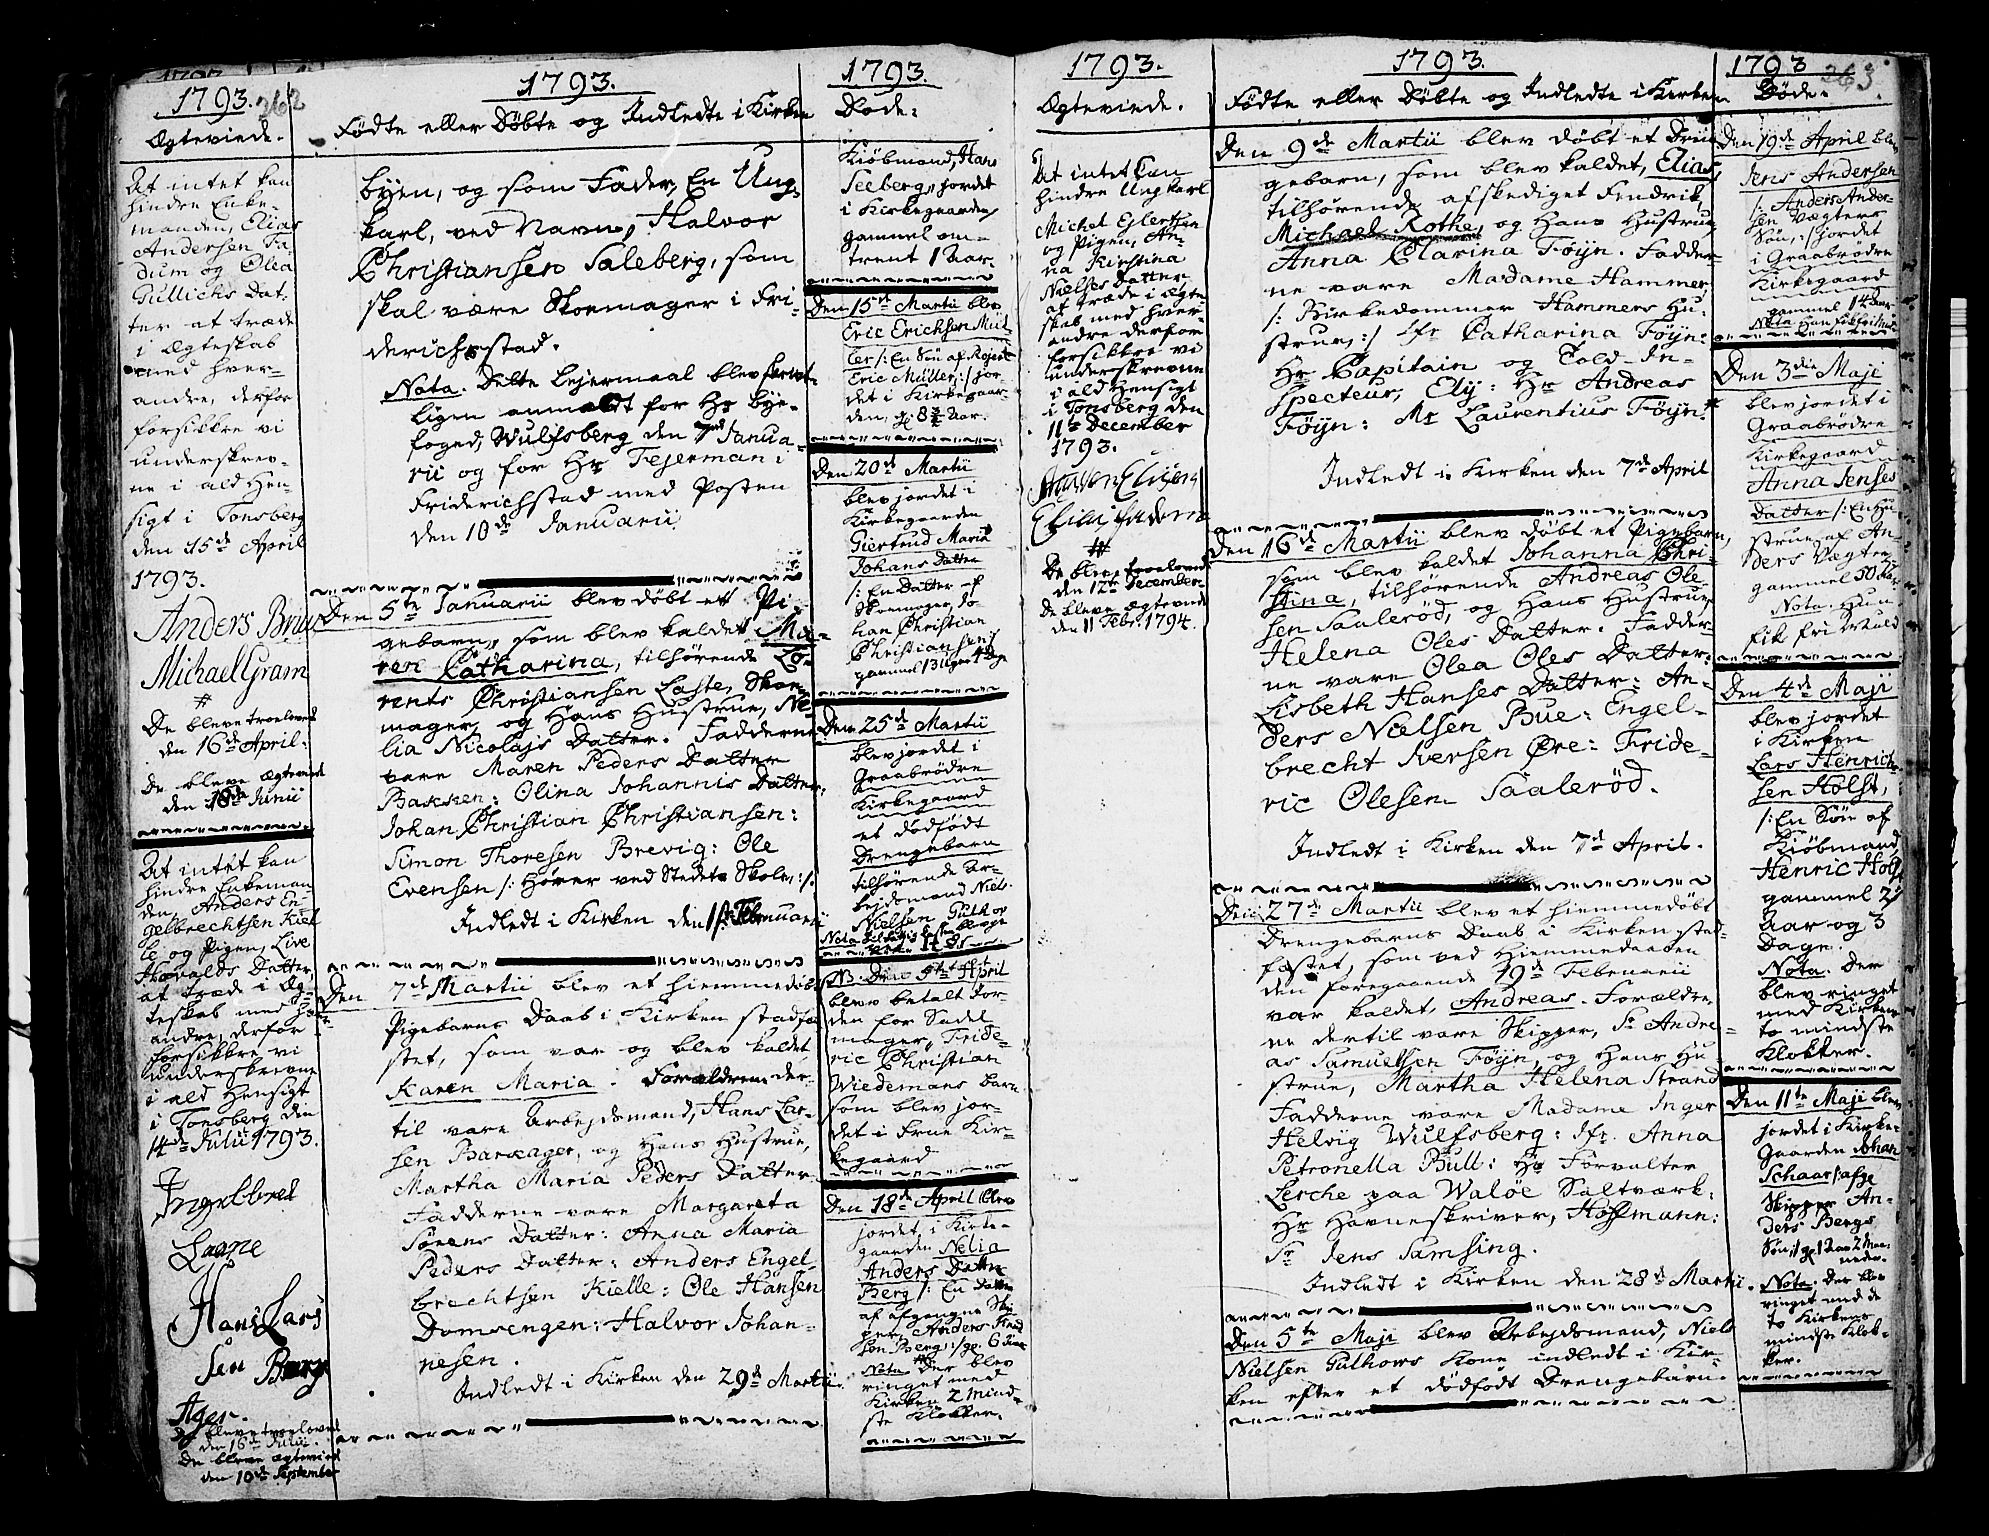 1793.
262
Ægteviede.
At intet kan
hindre Enke-
manden, Elias
Andersen Fa-
dum og Olea
Gullichs Dat-
ter at træde
i Ægteskab
med hver-
andre, derfor
forsikkre vi
underskrev-
ne i ald Hen-
sigt i Tonsberg
den 15de April
1793.
Anders Bruu
Michael Gram
#
De bleve troelovede
den 16de April:
De bleve Ægteviede
den 18de Junii
At intet kan
hindre Enkeman
den, Anders En
gelbrechtsen Kiel
le og Pigen, Live
Thovalds Datter,
at træde i Æg-
teskab med hver
andre, derfor
forsikkre vi
underskrevne
i ald Hensigt
i Tonsberg den
14de Julii 1793.
Ingelbret
Hans Lars
sen Barx
Ager.
De bleve troelovet
den 16de Julii.
De bleve ægteviet
den 10de September
1793.
Fødte eller Døbte og Indledte i Kirken
byen, og som Fader, En Ung-
karl, ved Navn, Halvor
Christiansen Saleberg, som
skal være Skoemager i Fri-
derichstad.
Nota. Dette Lejermaal blev skrivt-
ligen anmældt for Hr Bye-
foged, Wulfsberg den 7de Janua-
rii og for Hr Fejerman i
Friderichstad med Posten
den 10de Januarii.
Den 5te Januarii blev døbt et Pi-
gebarn, som blev kaldet Ma-
ren Catharina, tilhørende Lo-
rents Christiansen Laste, Skoe-
mager, og Hans Hustrue, Ne-
lia Nicolajs Datter. Fadderne
vare Maren Peders Datter
Bakken: Olina Johannis Datter:
Johan Christian Christiansen:
Simon Thoresen Brevig: Ole
Evensen /: Hører ved Stedets Skole, :/.
Indledt i Kirken den 1ste Februarii
Den 7de Martii blev et hiemmedøbt
Pigebarns Daab i Kirken stadfæ-
stet, som var og blev kaldet
Karen Maria. Forældrene der-
til vare Arbejdsmand, Hans Lar-
sen Barxager, og Hans Hustrue,
Martha Maria Peders Datter
Fadderne vare Margareta
Sørens Datter: Anna Maria
Peders Datter: Anders Engel-
brechtsen Kielle: Ole Hansen
Domsengen: Halvor Johan-
nesen.
Indledt i Kirken den 29de Martii.
1793.
Døde:
Kiøbmand, Hans
Seeberg, jordet
i Kirkegaarden
gammel om-
trent 1 Aar.
Den 15de Martii blev
Eric Erichsen Mül-
ler /: En Søn af
Eric Müller, :/ jor-
det i Kirkegaar-
den, gl 8¾ Aar.
Den 20de Martii
blev jordet i
Kirkegaarden
Giertrud Maria
Johans Datter
/: En Datter af
Skoemager, Jo-
han Christian
Christiansens
gammel 13 Uger 4 Dage
Den 25de Martii
blev jordet i
Graabrødre
Kirkegaard
et dødfødt
Drengebarn
tilhørende Ar-
bejdsmand Niels
Nielsen Guthov
NB. Den 5te April
blev betalt Jor-
den for Sadel
mager, Fride-
ric Christian
Wiedemans barn
som blev jor-
det i Frue Kir-
kegaard
Den 18de April blev
jordet i Kirke-
gaarden Nelia
Anders Datter
Berg /: En Datter
af afgangne Ski-
per, Anders
son Berg, :/ gl. 6 Aar
Nota. Der blev
ringet med
Kirkens 2 mind-
ste Klokker.
1793.
Ægteviede.
At intet kan
hindre Ungkarl
Michel Ejlertsen
og Pigen, An-
na Kirstina
Nielses Datter
at træde i Ægte
skab med hver-
andre derfor
forsikkre vi
underskrevne
i ald Hensigt
i Tonsberg den
11te December
1793.
#
De bleve troelovede
den 12te December.
De bleve Ægteviede
den 11 Febr. 1794.
1793.
Fødte eller Døbte og Indledte i Kirken
Den 9de Martii blev døbt et Dren-
gebarn, som blev kaldet, Elias,
tilhørende afskediget Fendrik,
Michael Rothe, og Hans Hustrue
Anna Clarina Føyn. Fadder-
ne vare Madame Hammer
/: Birkedommer Hammers Hu-
strue, :/ Jfr Catharina Føyn:
Hr Capitain og Told-In-
specteur, Ely: Hr Andreas
Føyn: Mr Laurentius Føyn.
Indledt i Kirken den 7de April
Den 16de Martii blev døbt et Pigebarn,
som blev kaldet Johanna Chri-
stina, tilhørende Andreas Ole-
sen Saalerød, og Hans Hustrue,
Helena Oles Datter. Fadder-
ne vare Olea Oles Datter:
Lisbeth Hanses Datter: An-
ders Nielsen Bue: Engel-
brecht Iversen Øre: Fride-
ric Olesen Saalerød.
Indledt i Kirken den 7de April.
Den 27de Martii blev et hiemmedøbt
Drengebarns Daab i Kirken stad-
fæstet, som ved Hiemmedaaben
den foregaaende 19de Februarii
var kaldet, Andreas. Forældre-
ne dertil vare Skipper, Sr Andre-
as Samuelsen Føyn, og Hans Hu-
strue, Martha Helena Strand
Fadderne vare Madame Inger
Helvig Wulfsberg: Jfr. Anna
Petronella Bull: Hr Forvalter
Lerche paa Waløe Saltværk:
Hr Havneskriver, Hoffmann:
Sr Jens Samsing.
Indledt i Kirken den 28de Martii.
Den 5te Maji blev Arbejdsmand, Niels
Nielsen Guthows Kone indledt i Kir-
ken efter et dødfødt Drengebarn.
1793
263.
Døde.
Den 19de April blev
Jens Andersen
/: Anders Ander-
sen Vægters
Søn, :/ jordet
i Graabrødre
Kirkegaard
gammel 14 Aar
Nota Han fik fri Muld
Den 3die Maji
blev jordet i
Graabrødre
Kirkegaard
Anna Jenses
Datter /: En Hu-
strue af An-
ders Vægter
gammel 50 Aar
Nota. Hun
fik fri Muld
Den 4de Maji
blev jordet
i Kirken
Lars Henrich-
sen Holst,
/: En Søn af
Kiøbmand,
Henric Holst
gammel 2
Aar og 3
Dage.
Nota. Der
blev ringet
med Kirkens
to mindste
Klokker.
Den 11te Maji blev
jordet i Kirke-
Gaarden Johan
Schaar /: afge
Skipper An-
ders Bergs
Søn :/ gl. 1 Aar 2 Maa-
neder.
Nota. Der blev
ringet med de
to Kirkens
mindste Klok-
ker.